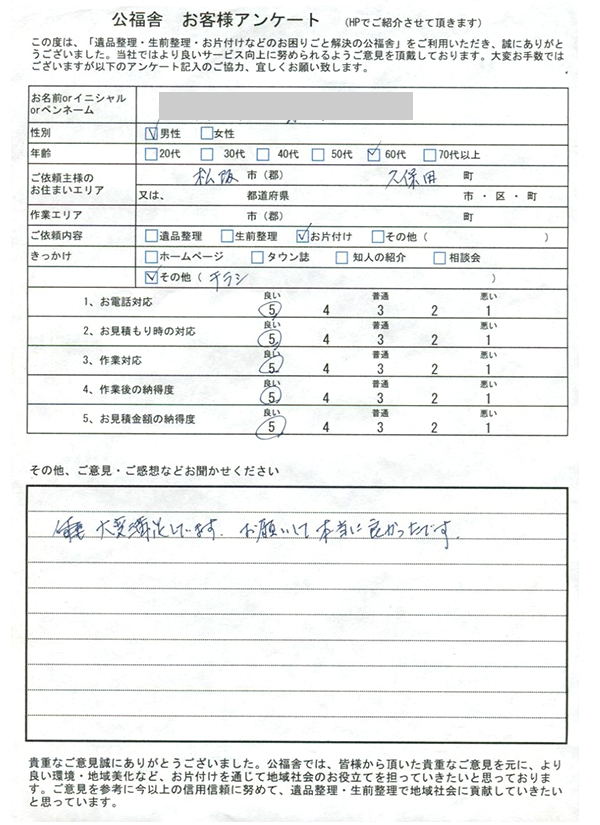 公福舎 お客様アンケート (HPでご紹介させて頂きます)
この度は、「遺品整理・生前整理・お片付けなどのお困りごと解決の公福舎」をご利用いただき、誠にありがと
うございました。当社ではより良いサービス向上に努められるようご意見を頂戴しております。大変お手数では
ございますが以下のアンケート記入のご協力、宜しくお願い致します。
お名前orイニシャル
orペンネーム
性別 男性 女性
年齢 20代 30代 40代 50代 60代 70代以上
ご依頼主様の
お住まいエリア
松阪 市(郡) 久保田 町
又は、 都道府県 市・区・町
作業エリア 市(郡) 町
ご依頼内容 遺品整理 生前整理 お片付け その他( )
きっかけ ホームページ タウン誌 知人の紹介 相談会
その他(チラシ )
1、お電話対応 良い 5 4 普通 3 2 悪い 1
2、お見積もり時の対応 良い 5 4 普通 3 2 悪い 1
3、作業対応 良い 5 4 普通 3 2 悪い 1
4、作業後の納得度 良い 5 4 普通 3 2 悪い 1
5、お見積金額の納得度 良い 5 4 普通 3 2 悪い 1
その他、ご意見・ご感想などお聞かせください
大変満足しています. お願いして本当に良かったです.
貴重なご意見誠にありがとうございました。公福舎では、皆様から頂いた貴重なご意見を元に、より
良い環境・地域美化など、お片付けを通じて地域社会のお役立てを担っていきたいと思っておりま
す。ご意見を参考に今以上の信用信頼に努めて、遺品整理・生前整理で地域社会に貢献していきたい
と思っています。